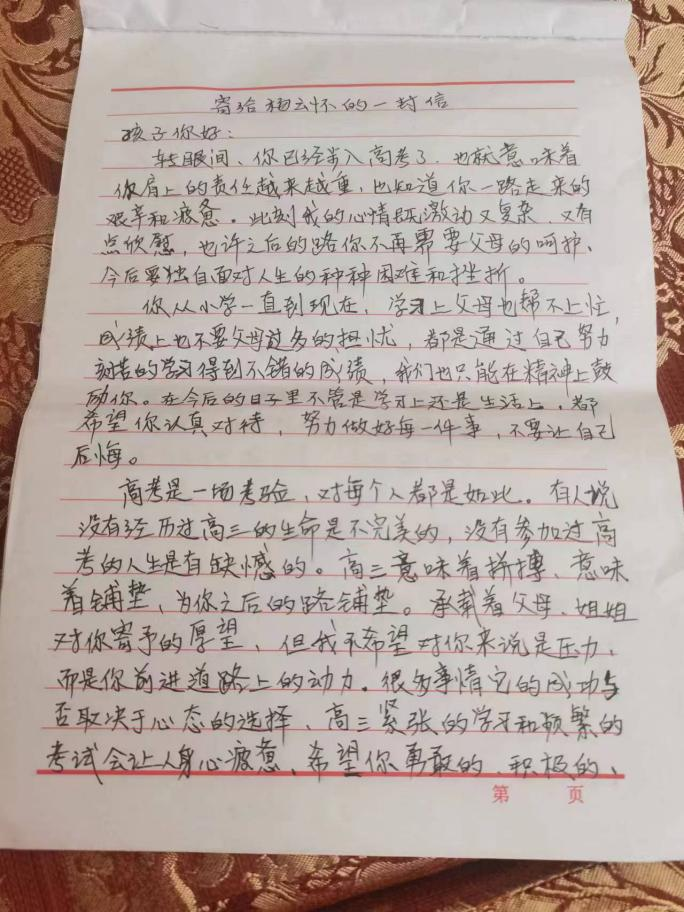 寄给杨云怀的一封信
孩子你好：
转眼间、你已经步入高考了，也就意味着
你肩上的责任越来越重，也知道你一路走来的
艰辛和疲惫。此刻我的心情既激动又复杂，又有
点欣慰，也许之后的路你不再需要父母的呵护、
今后要独自面对人生的种种困难和挫折。
你从小学一直到现在，学习上父母也帮不上忙，
成绩上也不要父母过多的担忧，都是通过自己努力
刻苦的学习得到不错的成绩，我们也只能在精神上鼓
励你。在今后的日子里不管是学习上还是生活上，都
希望你认真对待，努力做好每一件事，不要让自己
后悔。
高考是一场考验，对每个人都是如此。有人说
没有经历过高三的生命是不完美的，没有参加过高
考的人生是有缺憾的。高三意味着拼搏、意味
着铺垫，为你之后的路铺垫。承载着父母、姐姐
对你寄予的厚望，但我不希望对你来说是压力，
而是你前进道路上的动力。很多事情它的成功与
否取决于心态的选择、高三紧张的学习和频繁的
考试会让人身心疲惫、希望你勇敢的、积极的、
第 页